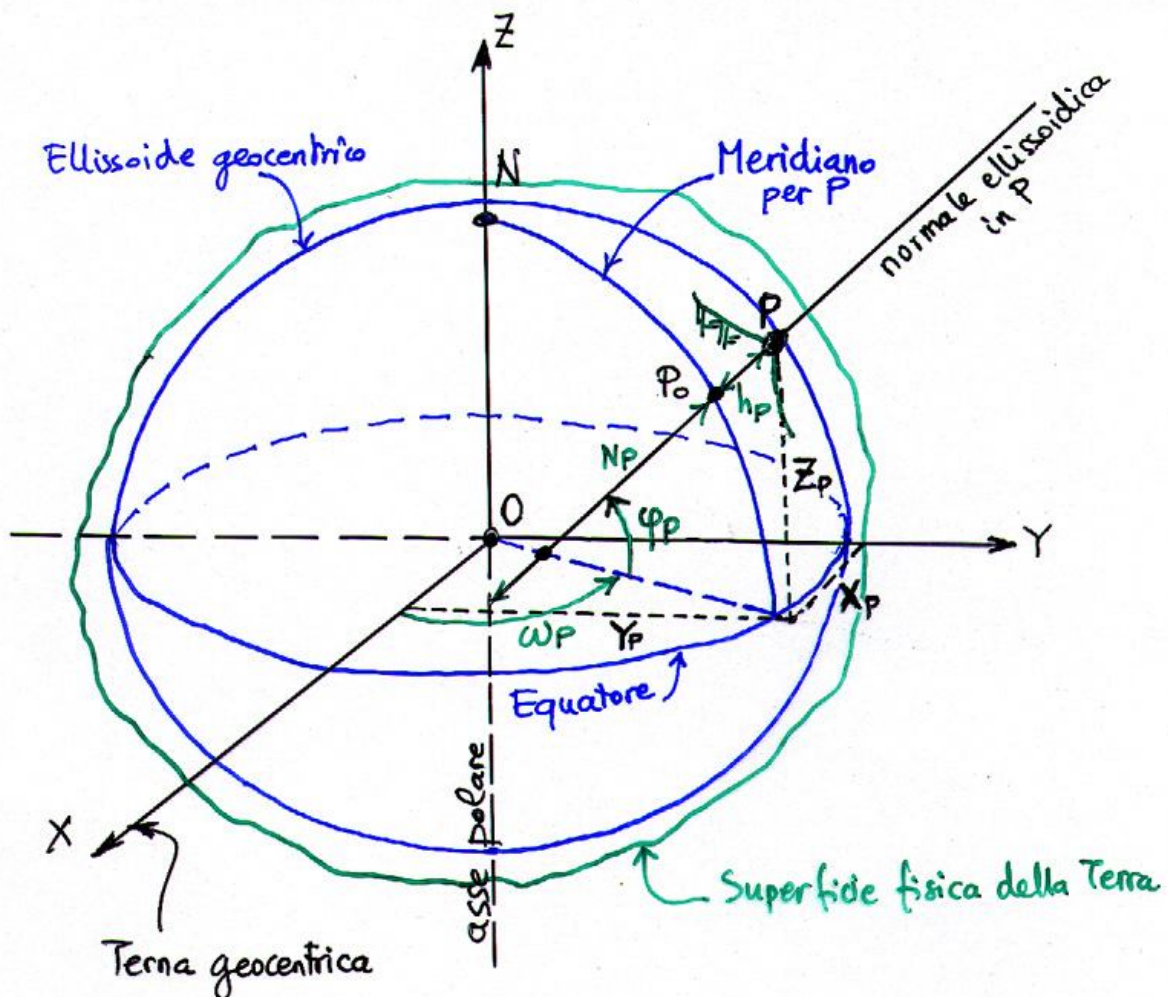 Z
Ellissoide geocentrico
N
Meridiano
per P
normale ellissoidica
in P
P
P₀
hp
Np
Zp
O
φp
Y
Xp
ωp
Yp
Equatore
X
asse polare
Superficie fisica della Terra
Terna geocentrica